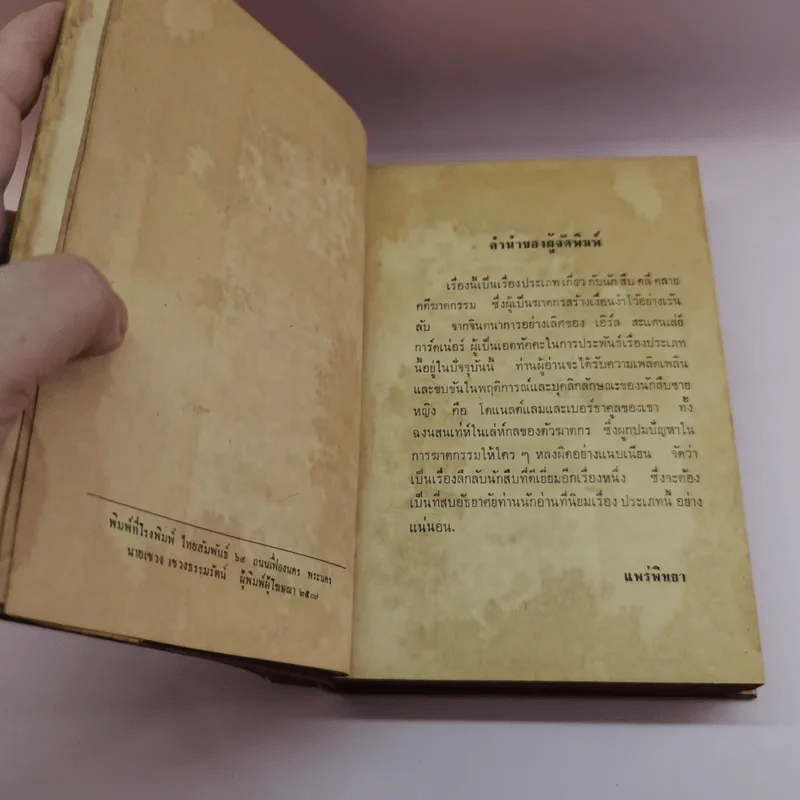 พิมพ์ที่โรงพิมพ์ ไทยสัมพันธ์ ๖๙ ถนนเฟื่องนคร พระนคร
นายเชวง เชวงธรรมรัตน์ ผู้พิมพ์ผู้โฆษณา ๒๕๐๗
คำนำของผู้จัดพิมพ์
เรื่องนี้เป็นเรื่องประเภท เกี่ยว กับนักสืบ คลี่ คลาย
คดีฆาตกรรม ซึ่งผู้เป็นฆาตกรสร้างเงื่อนงำไว้อย่างเร้น
ลับ จากจินตนาการอย่างเลิศของ เอิร์ล สะแตนเล่ย์
การ์ดเน่อร์ ผู้เป็นเอตทัคคะในการประพันธ์เรื่องประเภท
นี้อยู่ในปัจจุบันนี้ ท่านผู้อ่านจะได้รับความเพลิดเพลิน
และขบขันในพฤติการณ์และบุคลิกลักษณะของนักสืบชาย
หญิง คือ โดแนลด์แลมและเบอร์ธาคูลของเขา ทั้ง
ฉงนสนเท่ห์ในเล่ห์กลของตัวฆาตกร ซึ่งผูกปมปัญหาใน
การฆาตกรรมให้ใคร ๆ หลงผิดอย่างแนบเนียน จัดว่า
เป็นเรื่องลึกลับนักสืบที่ดีเยี่ยมอีกเรื่องหนึ่ง ซึ่งจะต้อง
เป็นที่สบอัธยาศัยท่านนักอ่านที่นิยมเรื่อง ประเภทนี้ อย่าง
แน่นอน.
แพร่พิทยา